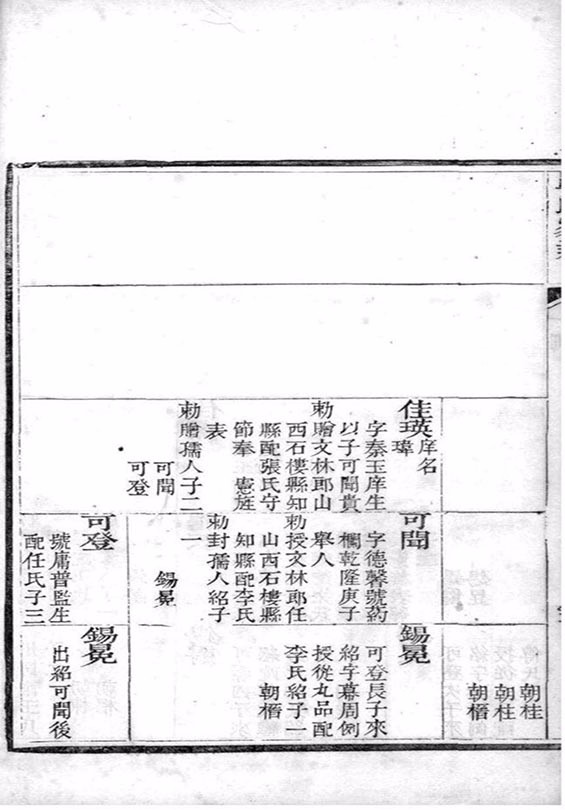 朝桂
朝桂
朝櫡
佳瑛
庠名
瑋
字泰玉庠生
以子可聞貴
勅贈文林郎山
西石樓縣知
縣配張氏守
節奉 憲旌
表
勅贈孺人子二
可聞
可登
可聞
字德馨號葯
欄乾隆庚子
舉人
勅授文林郎任
山西石樓縣
知縣配李氏
勅封孺人紹子
一
錫冕
錫冕
可登長子來
紹字幕周例
授從九品配
李氏紹子一
朝櫡
可登
號庸普監生
配任氏子三
錫冕
出紹可聞後